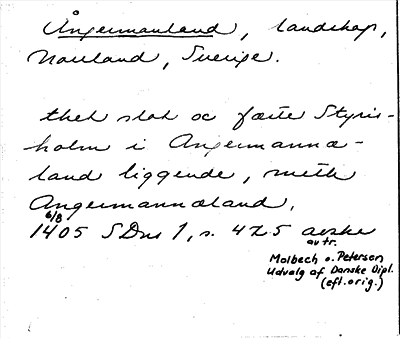 Ångermanland, landskap,
Norrland, Sverige.
thet slot oc fæste Styris-
holm i Angermanna-
land liggende, meth
Angermannaland,
6/8
1405 SDns 1, s. 425 aeske
avtr.
Molbech o. Petersen
Udvalg af Danske Dipl.
(eft.orig.)